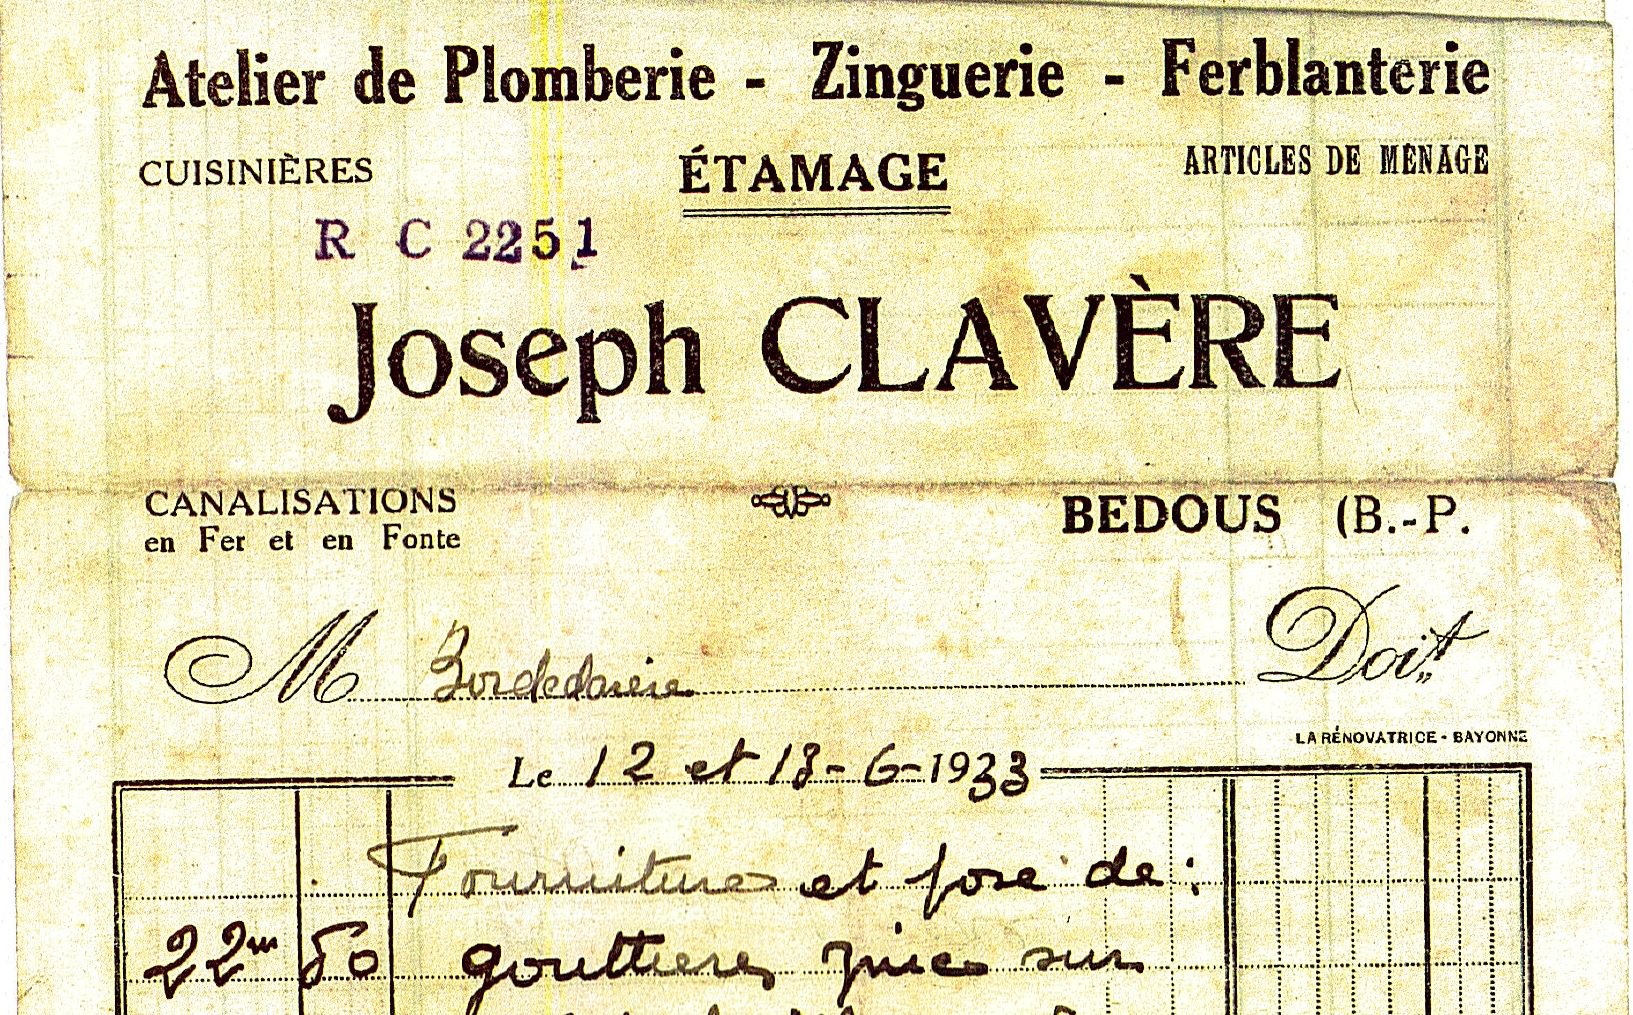 Atelier de Plomberie - Zinguerie - Ferblanterie
CUISINIÈRES ÉTAMAGE ARTICLES DE MÉNAGE
R C 2251
Joseph CLAVÈRE
CANALISATIONS BEDOUS (B.-P.
en Fer et en Fonte
M Doit
LA RÉNOVATRICE - BAYONNE
Le 12 et 13-6-1933
Fournitures et pose de :
22m 50 gouttieres zinc sur